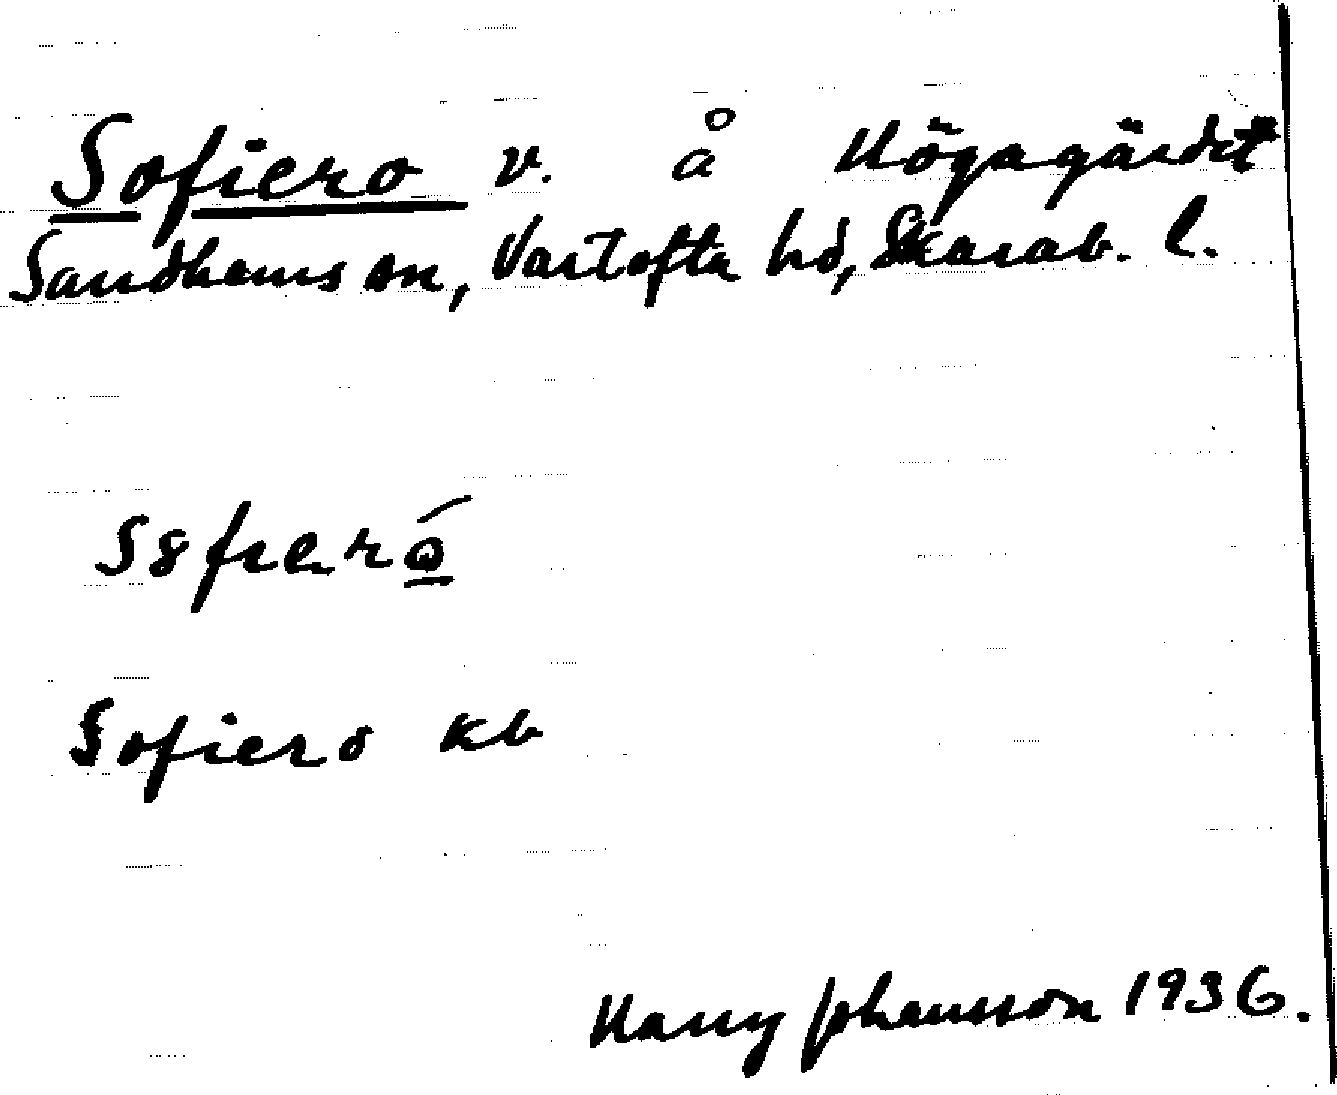 Sofiero v. å Högagärdet
Sandhems sn, Vartofta hd, Skarab. l.
Sofiero kb
Harry Johansson 1936.